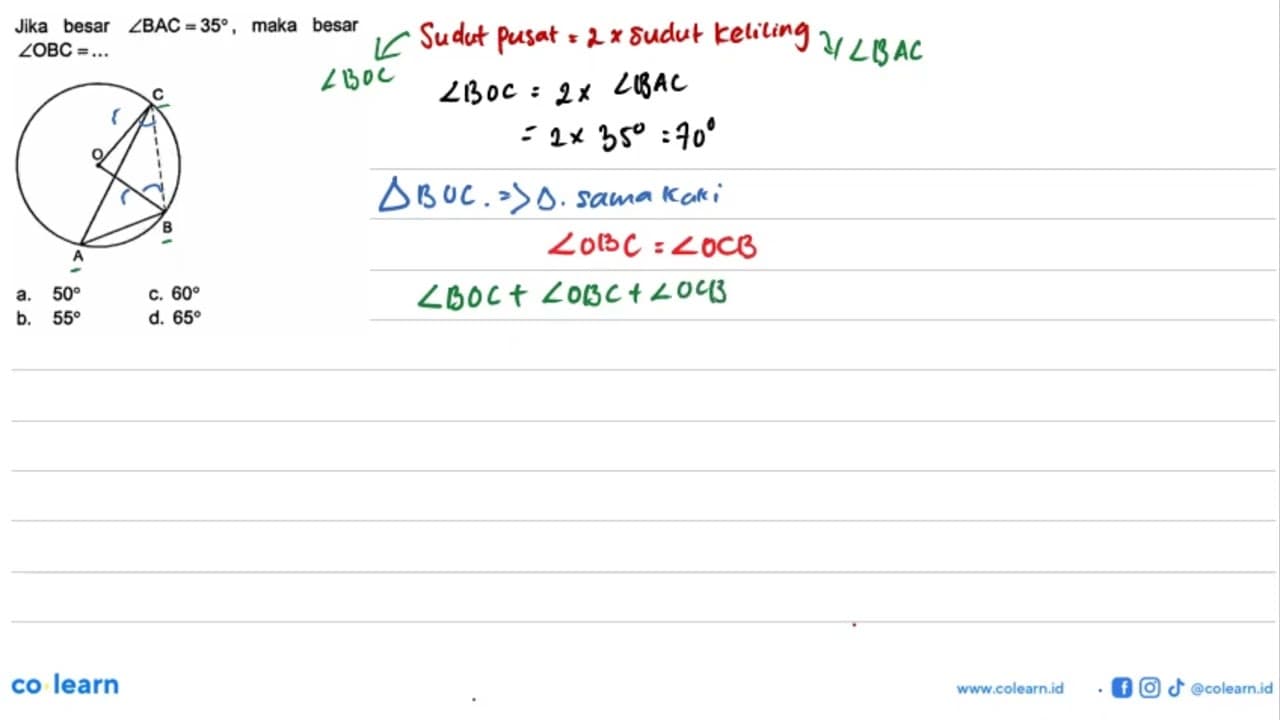 Jika besar ∠BAC = 35°, maka besar
∠OBC = ...
C
O
r
r
B
A
a. 50° c. 60°
b. 55° d. 65°
Sudut pusat = 2 x sudut keliling
∠BOC
∠BAC
∠BOC = 2x ∠BAC
= 2x 35° = 70°
△BOC. => △. sama kaki
∠OBC = ∠OCB
∠BOC + ∠OBC + ∠OCB
co learn
www.colearn.id
@colearn.id